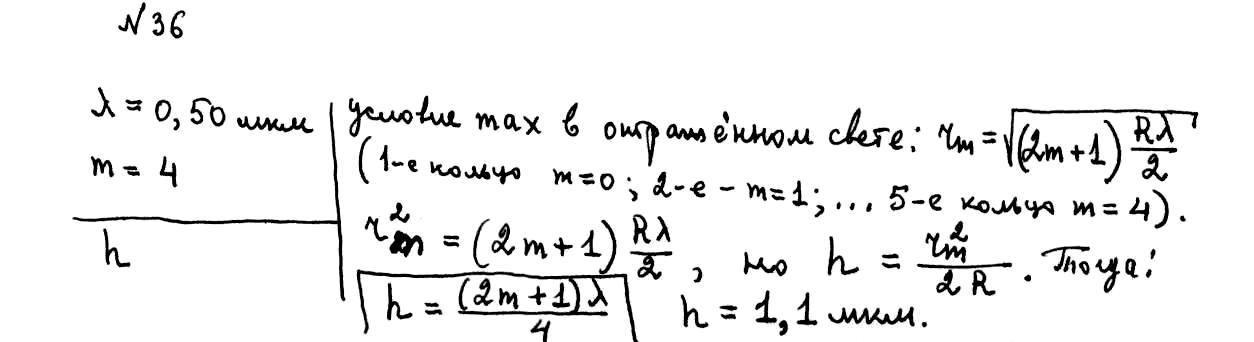 № 36
λ = 0,50 мкм
m = 4
h
условие max в отражённом свете: r_m = √((2m+1) Rλ/2)
(1-е кольцо m=0; 2-е – m=1; ... 5-е кольцо m=4).
r_m² = (2m+1) Rλ/2, но h = r_m²/2R. Тогда:
h = (2m+1)λ/4 h = 1,1 мкм.